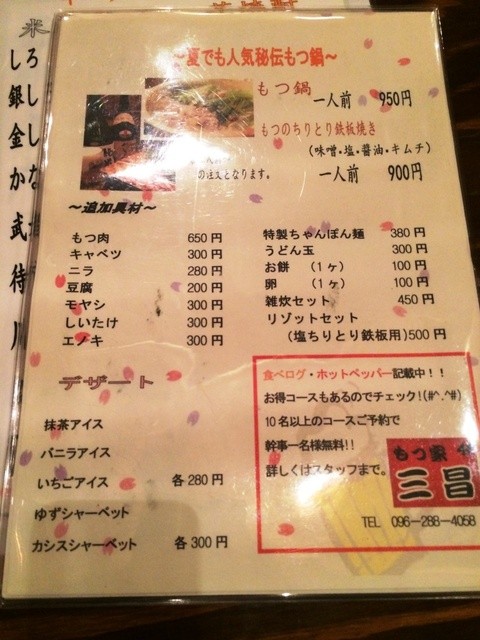 ～夏でも人気秘伝もつ鍋～
もつ鍋
一人前 950円
もつのちりとり鉄板焼き
(味噌・塩・醤油・キムチ)
の注文となります。
一人前 900円
～追加具材～
もつ肉 650円
キャベツ 300円
ニラ 280円
豆腐 200円
モヤシ 300円
しいたけ 300円
エノキ 300円
特製ちゃんぽん麺 380円
うどん玉 300円
お餅 (1ヶ) 100円
卵 (1ヶ) 100円
雑炊セット 450円
リゾットセット
(塩ちりとり鉄板用)500円
デザート
抹茶アイス
バニラアイス
いちごアイス 各280円
ゆずシャーベット
カシスシャーベット 各300円
食べログ・ホットペッパー記載中！！
お得コースもあるのでチェック！(#^.^#)
10名以上のコースご予約で
幹事一名様無料！！
詳しくはスタッフまで。
もつ家
三昌
TEL 096-288-4058
米
ろしし
し銀金か武待